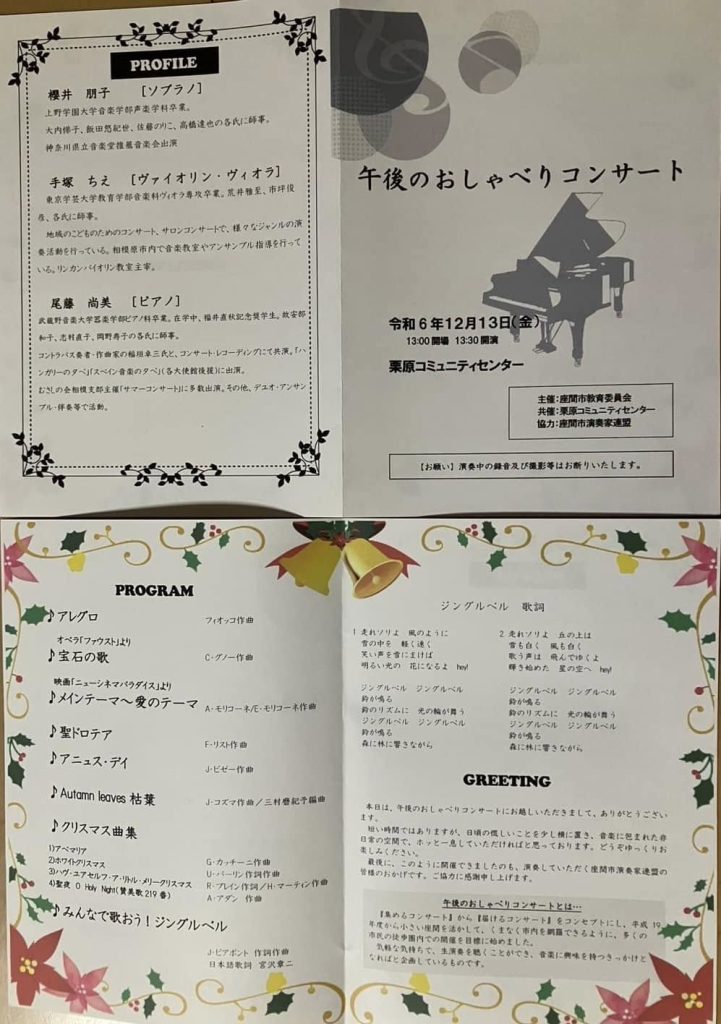 PROFILE
櫻井 朋子 [ソプラノ]
上野学園大学音楽学部声楽学科卒業。
大内悌子、飯田悠紀世、佐藤のりこ、高橋達也の各氏に師事。
神奈川県立音楽堂推薦音楽会出演
手塚 ちえ [ヴァイオリン・ヴィオラ]
東京学芸大学教育学部音楽科ヴィオラ専攻卒業。荒井雅至、市坪俊
彦、各氏に師事。
地域のこどものためのコンサート、サロンコンサートで、様々なジャンルの演
奏活動を行っている。相模原市内で音楽教室やアンサンブル指導を行って
いる。リンカンバイオリン教室主宰。
尾藤 尚美 [ピアノ]
武蔵野音楽大学器楽学部ピアノ科卒業。在学中、福井直秋記念奨学生。故安部
和子、志村直子、岡野寿子の各氏に師事。
コントラバス奏者・作曲家の稲垣卓三氏と、コンサート・レコーディングにて共演。「ハ
ンガリーの夕べ」「スペイン音楽の夕べ」(各大使館後援)に出演。
むさしの会相模支部主催「サマーコンサート」に多数出演。その他、デュオ・アンサン
ブル・伴奏等で活動。
午後のおしゃべりコンサート
令和6年12月13日(金)
13:00開場 13:30開演
栗原コミュニティセンター
主催:座間市教育委員会
共催:栗原コミュニティセンター
協力:座間市演奏家連盟
【お願い】演奏中の録音及び撮影等はお断りいたします。
PROGRAM
♪アレグロ フィオッコ作曲
オペラ「ファウスト」より
♪宝石の歌 C・グノー作曲
映画「ニューシネマパラダイス」より
♪メインテーマ〜愛のテーマ A・モリコーネ/E・モリコーネ作曲
♪聖ドロテア F・リスト作曲
♪アニュス・デイ J・ビゼー作曲
♪Autumn leaves 枯葉 J・コズマ作曲/三村磨紀子編曲
♪クリスマス曲集
1)アベマリア G・カッチーニ作曲
2)ホワイトクリスマス U・バーリン作詞作曲
3)ハヴ・ユアセルフ・ア・リトル・メリークリスマス R・ブレイン作詞/H・マーティン作曲
4)聖夜 O Holy Night(賛美歌219番) A・アダン 作曲
♪みんなで歌おう!ジングルベル
J・ピアポント 作詞作曲
日本語歌詞 宮沢章二
ジングルベル 歌詞
1 走れソリよ 風のように
雪の中を 軽く速く
笑い声を 雪にまけば
明るい光の 花になるよ hey!
ジングルベル ジングルベル
鈴が鳴る
鈴のリズムに 光の輪が舞う
ジングルベル ジングルベル
鈴が鳴る
森に林に響きながら
2 走れソリよ 丘の上は
雪も白く 風も白く
歌う声は 飛んでゆくよ
輝き始めた 星の空へ hey!
ジングルベル ジングルベル
鈴が鳴る
鈴のリズムに 光の輪が舞う
ジングルベル ジングルベル
鈴が鳴る
森に林に響きながら
GREETING
本日は、午後のおしゃべりコンサートにお越しいただきまして、ありがとうござい
ます。
短い時間ではありますが、日頃の慌しいことを少し横に置き、音楽に包まれた非
日常の空間で、ホッと一息していただければと思っております。どうぞゆっくりお
楽しみください。
最後に、このように開催できましたのも、演奏していただく座間市演奏家連盟の
皆様のおかげです。ご協力に感謝申し上げます。
午後のおしゃべりコンサートとは…
『集めるコンサート』から『届けるコンサート』をコンセプトにし、平成19
年度から小さい座間を活かして、くまなく市内を網羅できるように、多くの
市民の徒歩圏内での開催を目標に始めました。
気軽な気持ちで、生演奏を聴くことができ、音楽に興味を持つきっかけと
なればと企画しているものです。